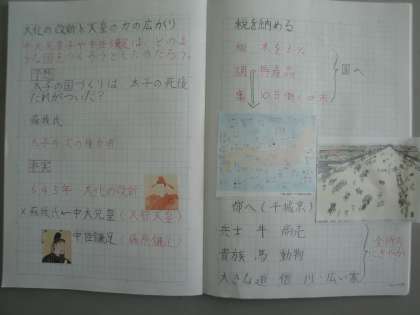 大化の改新と天皇の力の広がり
中大兄皇子や中臣鎌足は、どのような国をつくろうとしたのだろう。
予想
太子の国づくりは、太子の死後だれがついだ?
蘇我氏
事実
645年 大化の改新
×蘇我氏←中大兄皇子(天智天皇)
中臣鎌足(藤原鎌足)
税を納める
租 米を
調 特産品
国へ
都へ(平城京)
兵士 牛 商売
貴族 馬 動物
大きな道 僧 川 広い家